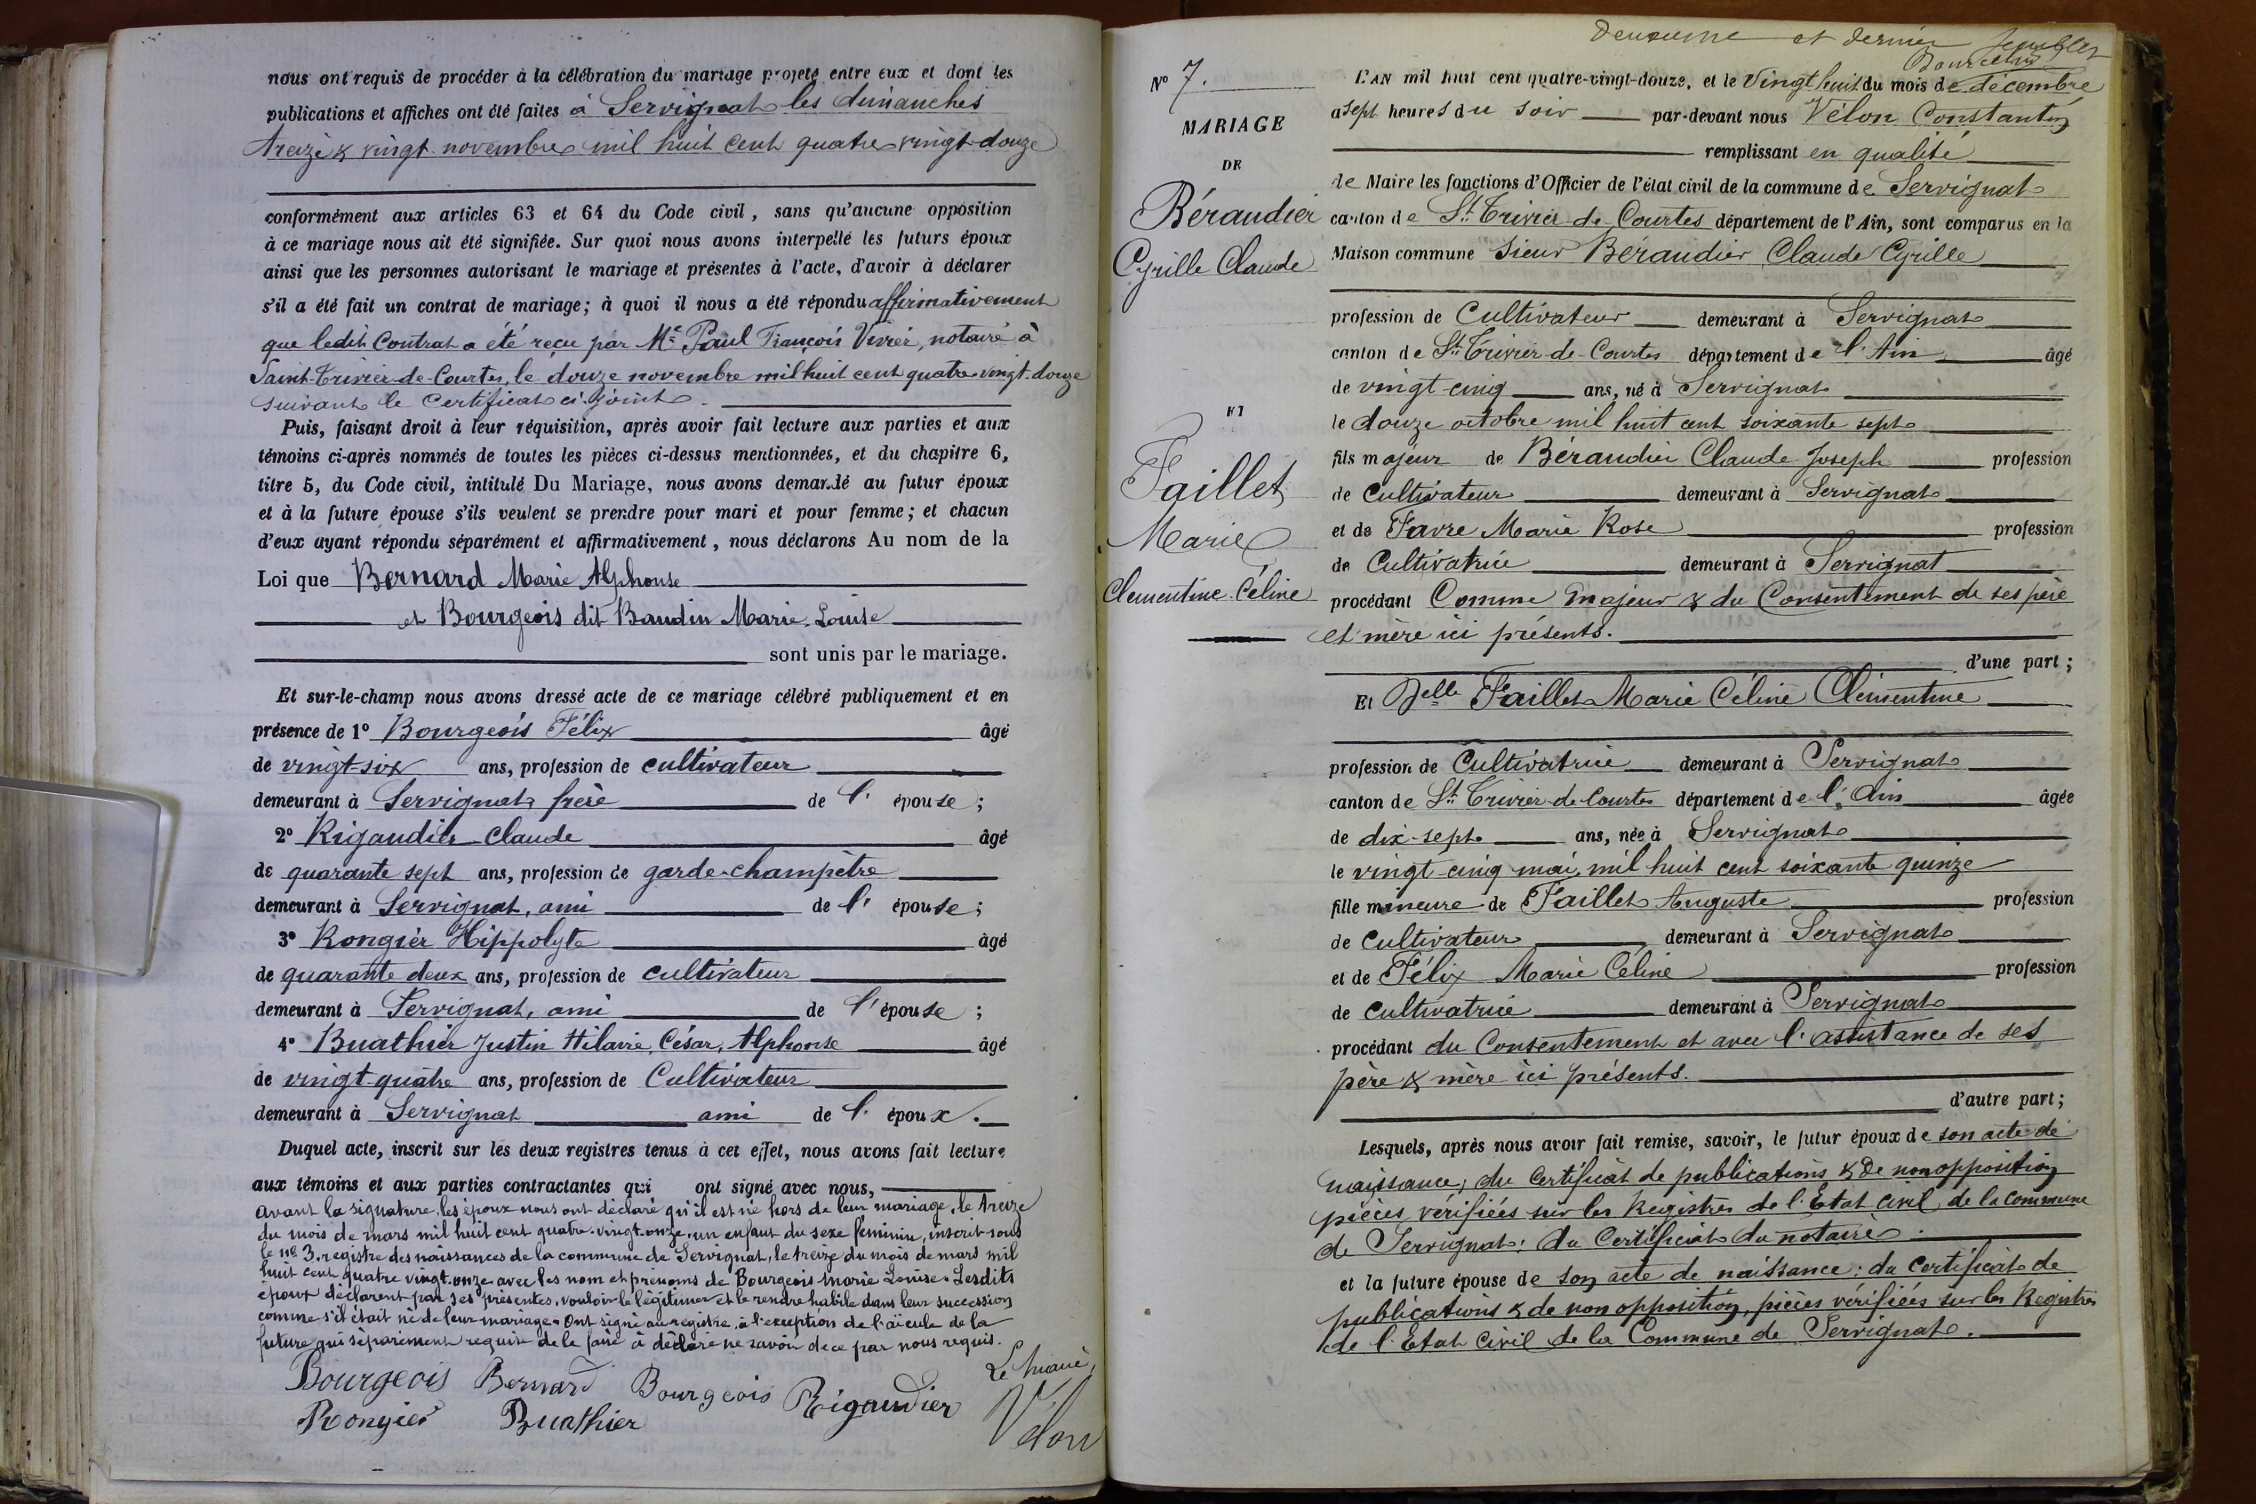 nous ont requis de procéder à la célébration du mariage projeté entre eux et dont les
publications et affiches ont été faites à Servignat les dimanches
treize & vingt novembre mil huit cent quatre vingt douze
conformément aux articles 63 et 64 du Code civil, sans qu'aucune opposition
à ce mariage nous ait été signifiée. Sur quoi nous avons interpellé les futurs époux
ainsi que les personnes autorisant le mariage et présentes à l'acte, d'avoir à déclarer
s'il a été fait un contrat de mariage; à quoi il nous a été répondu affirmativement
que ledit Contrat a été reçu par Me Paul François Vivier, notaire à
Saint-Trivier-de-Courtes, le douze novembre mil huit cent quatre-vingt-douze
suivant le Certificat ci-joint.
Puis, faisant droit à leur réquisition, après avoir fait lecture aux parties et aux
témoins ci-après nommés de toutes les pièces ci-dessus mentionnées, et du chapitre 6,
titre 5, du Code civil, intitulé Du Mariage, nous avons demandé au futur époux
et à la future épouse s'ils veulent se prendre pour mari et pour femme; et chacun
d'eux ayant répondu séparément et affirmativement, nous déclarons Au nom de la
Loi que Bernard Marie Alphonse
et Bourgeois dit Baudin Marie-Louise
sont unis par le mariage.
Et sur-le-champ nous avons dressé acte de ce mariage célébré publiquement et en
présence de 1º Bourgeois Félix âgé
de vingt-six ans, profession de cultivateur
demeurant à Servignat, frère de l'épouse;
2º Rigaudier Claude âgé
de quarante sept ans, profession de garde-champêtre
demeurant à Servignat, ami de l'épouse;
3º Rongier Hippolyte âgé
de quarante deux ans, profession de cultivateur
demeurant à Servignat, ami de l'épouse;
4º Buathier Justin Hilaire, César, Alphonse âgé
de vingt-quatre ans, profession de Cultivateur
demeurant à Servignat ami de l'époux.
Duquel acte, inscrit sur les deux registres tenus à cet effet, nous avons fait lecture
aux témoins et aux parties contractantes qui ont signé avec nous,
avant la signature, les époux nous ont déclaré qu'il est né hors de leur mariage, le treize
du mois de mars mil huit cent quatre-vingt-onze, un enfant du sexe féminin, inscrit sous
le nº 3, registre des naissances de la commune de Servignat, le treize du mois de mars mil
huit cent quatre vingt-onze avec les nom et prénoms de Bourgeois Marie Louise. Lesdits
époux déclarent par ses présentes, vouloir le légitimer et le rendre habile dans leur succession
comme s'il était né de leur mariage. Ont signé au registre, à l'exception de l'aïeule de la
future qui séparément requise de le faire a déclaré ne savoir de ce par nous requis.
Le maire,
Bourgeois Bernard Bourgeois Rigaudier
Rongier Buathier Vélon
Deuxième et dernier feuillet
Nº 7.
MARIAGE
DE
Béraudier
Cyrille Claude
ET
Faillet
Marie
Clementine Céline
L'AN mil huit cent quatre-vingt-douze, et le Vingt huit du mois de décembre
à sept heures du soir par-devant nous Vélon Constantin
remplissant en qualité
de Maire les fonctions d'Officier de l'état civil de la commune de Servignat
canton de St Trivier-de-Courtes département de l'Ain, sont comparus en la
Maison commune Sieur Béraudier Claude Cyrille
profession de Cultivateur demeurant à Servignat
canton de St Trivier-de-Courtes département de l'Ain âgé
de vingt-cinq ans, né à Servignat
le douze octobre mil huit cent soixante sept
fils majeur de Béraudier Claude Joseph profession
de Cultivateur demeurant à Servignat
et de Favre Marie Rose profession
de Cultivatrice demeurant à Servignat
procédant Comme majeur & du Consentement de ses père
et mère ici présents.
d'une part;
Et Delle Faillet Marie Céline Clémentine
profession de Cultivatrice demeurant à Servignat
canton de St Trivier-de-Courtes département de l'Ain âgée
de dix-sept ans, née à Servignat
le vingt-cinq mai mil huit cent soixante quinze
fille mineure de Faillet Auguste profession
de Cultivateur demeurant à Servignat
et de Félix Marie Céline profession
de cultivatrice demeurant à Servignat
procédant du Consentement et avec l'assistance de ses
père & mère ici présents.
d'autre part;
Lesquels, après nous avoir fait remise, savoir, le futur époux de son acte de
naissance; du certificat de publications & de non opposition
pièces vérifiées sur les Registres de l'Etat civil de la commune
de Servignat: du Certificat du notaire.
et la future épouse de son acte de naissance: du certificat de
publications & de non opposition, pièces vérifiées sur les Registres
de l'Etat Civil de la Commune de Servignat.